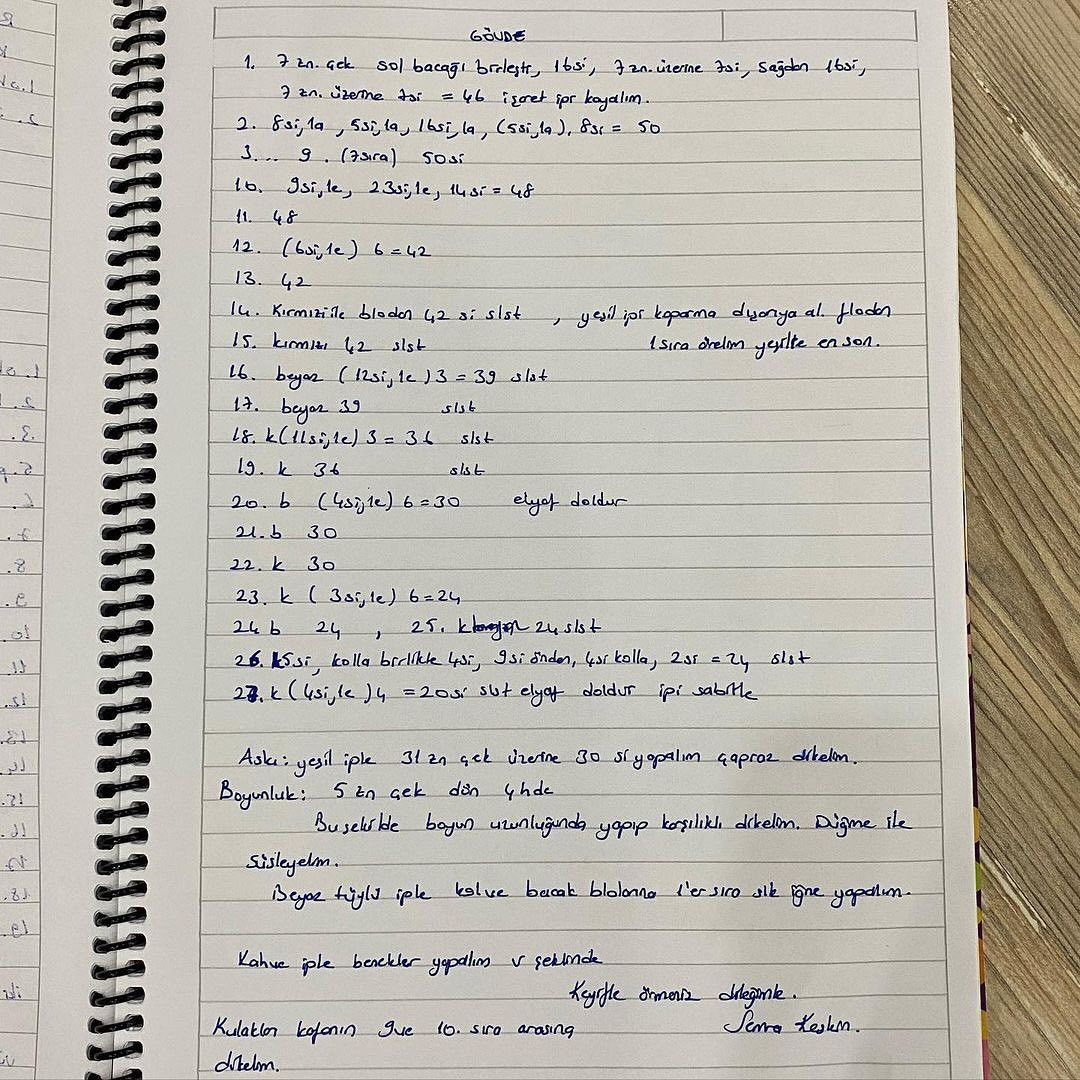 GÖVDE
1. 7 zn. çek sol bacağı birleştir, 16si, 7 zn. üzerine 7si, sağdan 16si,
7 zn. üzerine 7si = 46 işaret ipi koyalım.
2. 8si,1a, 5si,1a, 16si,1a, (5si,1a), 8si = 50
3... 9. (7sıra) 50si
10. 9si,1e, 23si,1e, 14si = 48
11. 48
12. (6si,1e) 6 = 42
13. 42
14. Kırmızı ile blodan 42 si slst , yeşil ipi koparma dışarıya al. flodan
15. kırmızı 42 slst 1 sıra örelim yeşille en son.
16. beyaz (12si,1e) 3 = 39 slst
17. beyaz 39 slst
18. k(11si,1e) 3 = 36 slst
19. k 36 slst
20. b (4si,1e) 6 = 30 elyaf doldur
21. b 30
22. k 30
23. k (3si,1e) 6 = 24
24 b 24 , 25. k 24 slst
26. k5si, kolla birlikte 4si, 9si önden, 4si kolla, 2si = 24 slst
27. k (4si,1e) 4 = 20si slst elyaf doldur ipi sabitle
Askı: yeşil iple 31 zn çek üzerine 30 si yapalım çapraz dikelim.
Boyunluk: 5 zn çek dön 4hdc
Bu şekilde boyun uzunluğunda yapıp karşılıklı dikelim. Düğme ile
süsleyelim.
Beyaz tüylü iple kol ve bacak blolarına 1'er sıra sık iğne yapalım.
Kahve iple benekler yapalım v şeklinde
Keyifle örmeniz dileğimle.
Kulakları kafanın 9 ve 10. sıra arasına Semra Keskin.
dikelim.